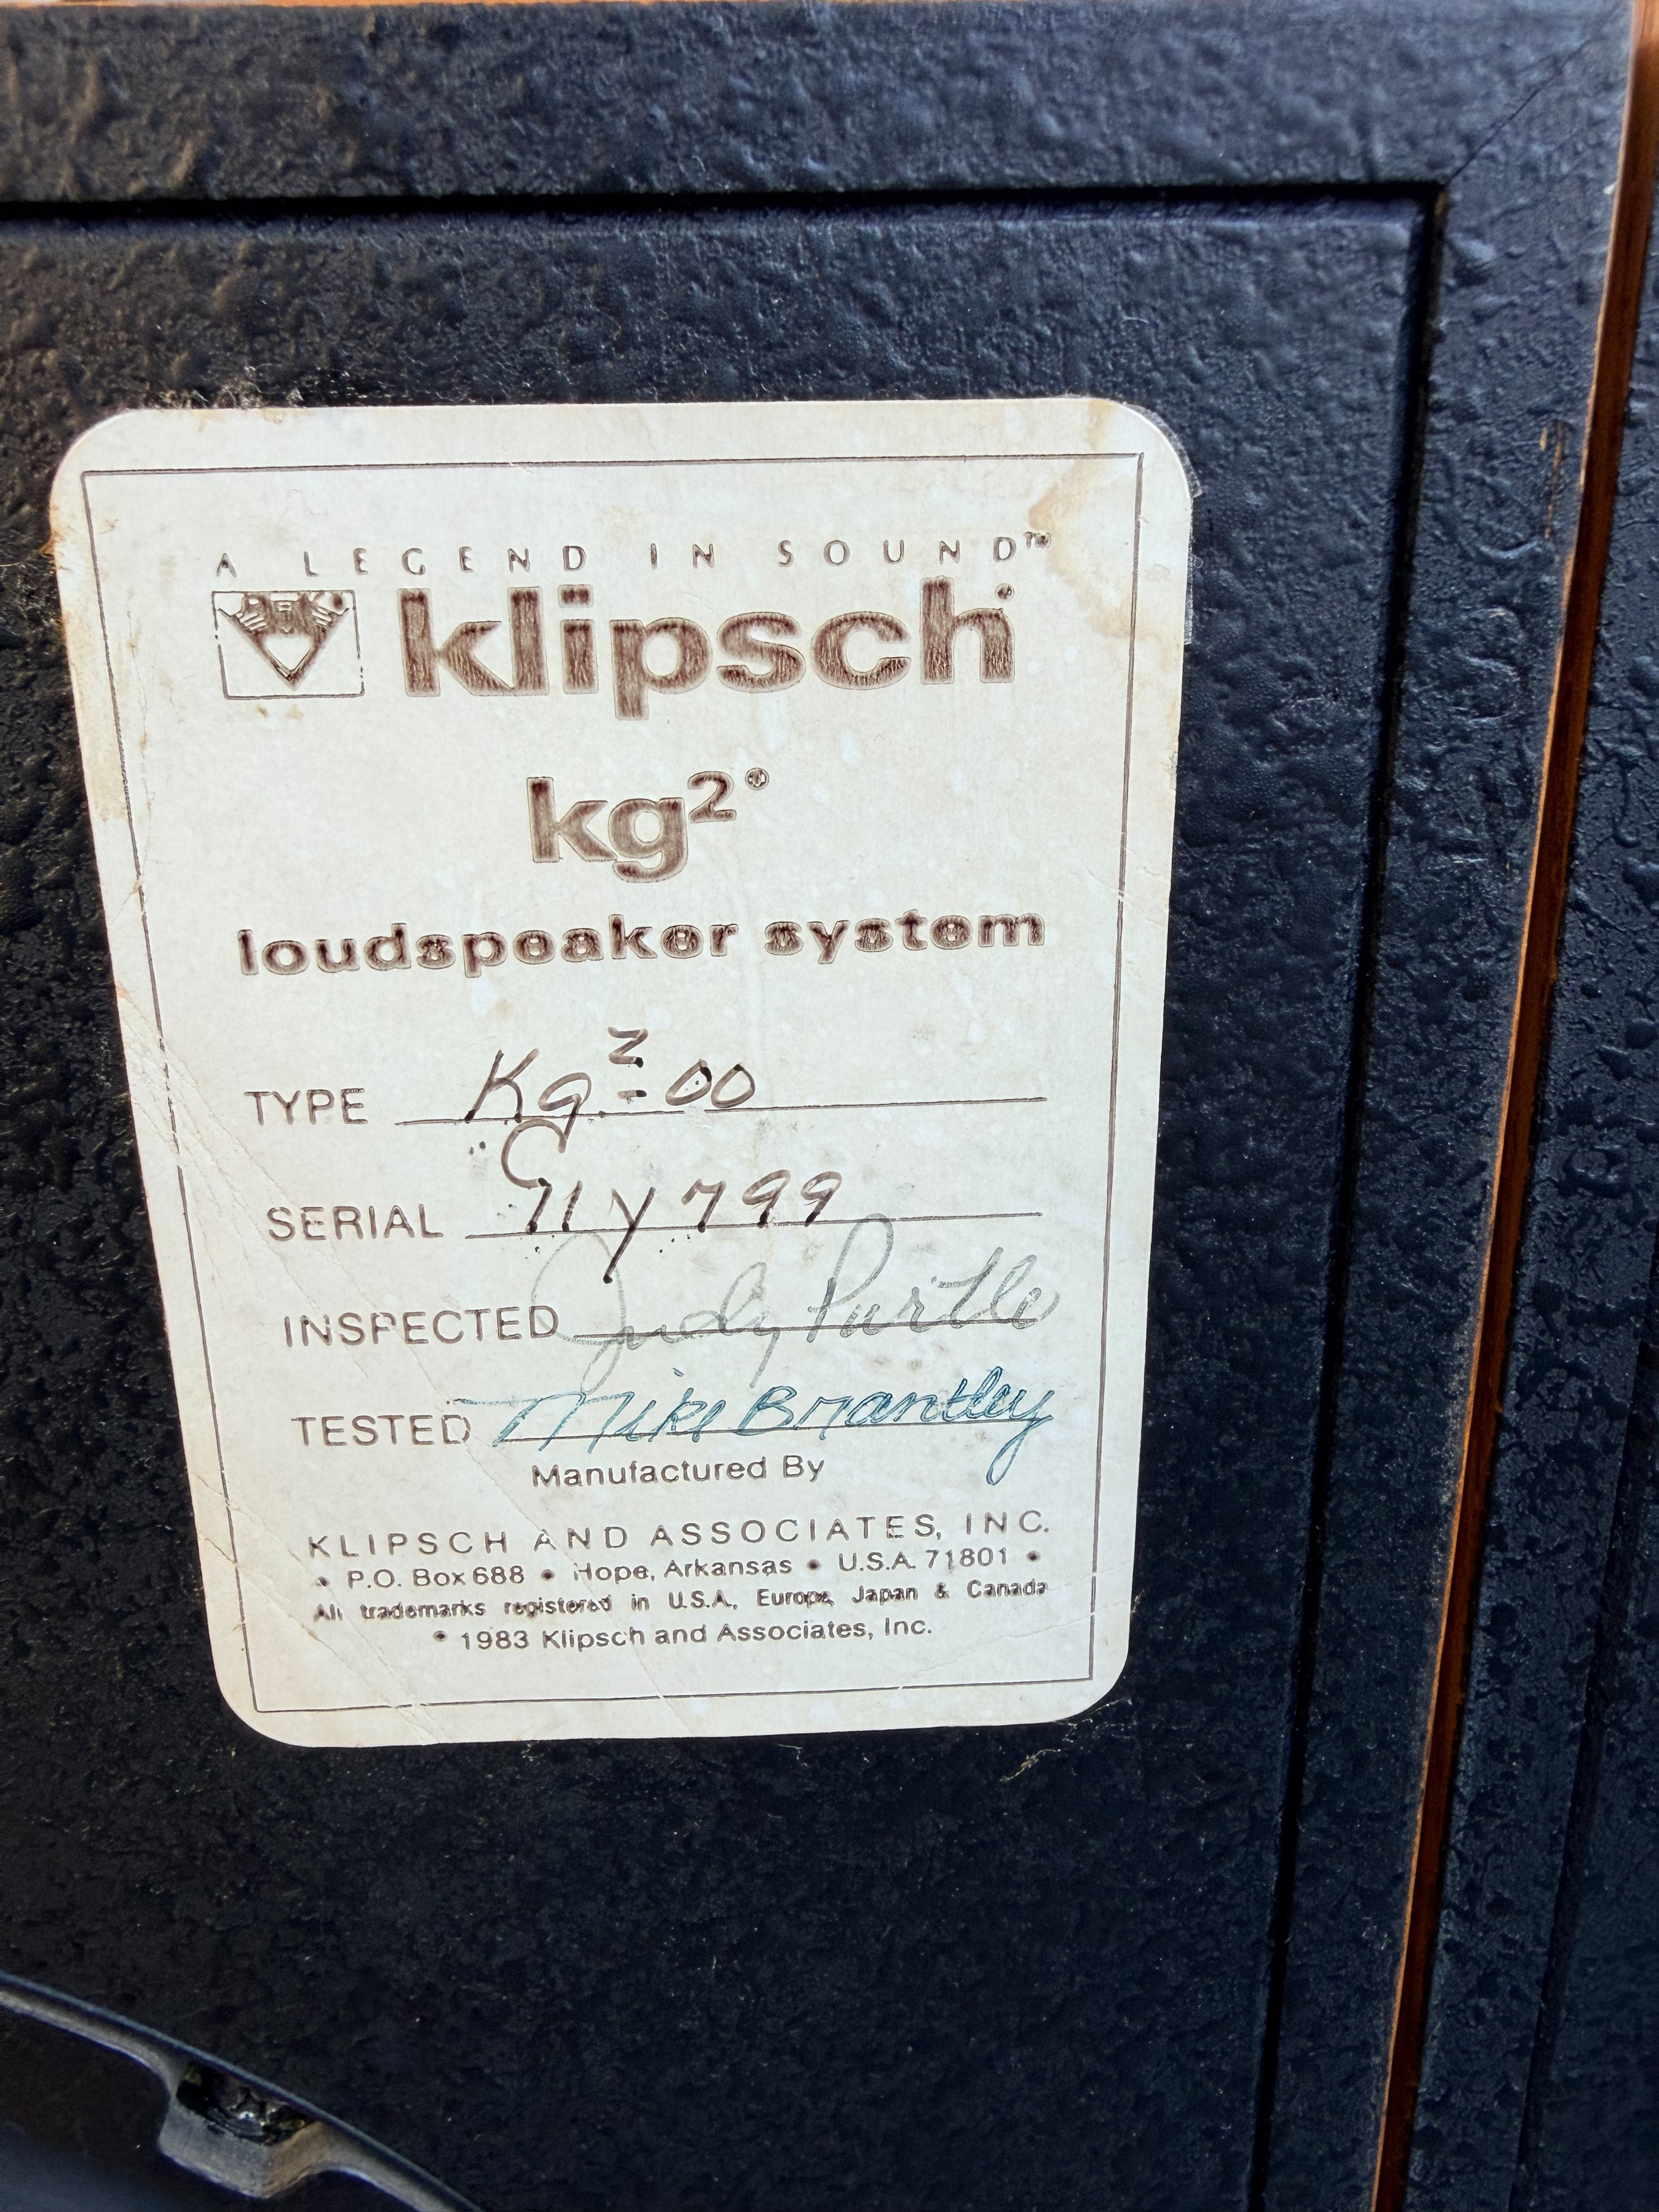 A LEGEND IN SOUND™
klipsch®
kg²®
loudspeaker system
TYPE Kg²-00
SERIAL 711y799
INSPECTED Judy Purtle
TESTED Mike Brantley
Manufactured By
KLIPSCH AND ASSOCIATES, INC.
• P.O. Box 688 • Hope, Arkansas • U.S.A. 71801 •
All trademarks registered in U.S.A., Europe, Japan & Canada
© 1983 Klipsch and Associates, Inc.